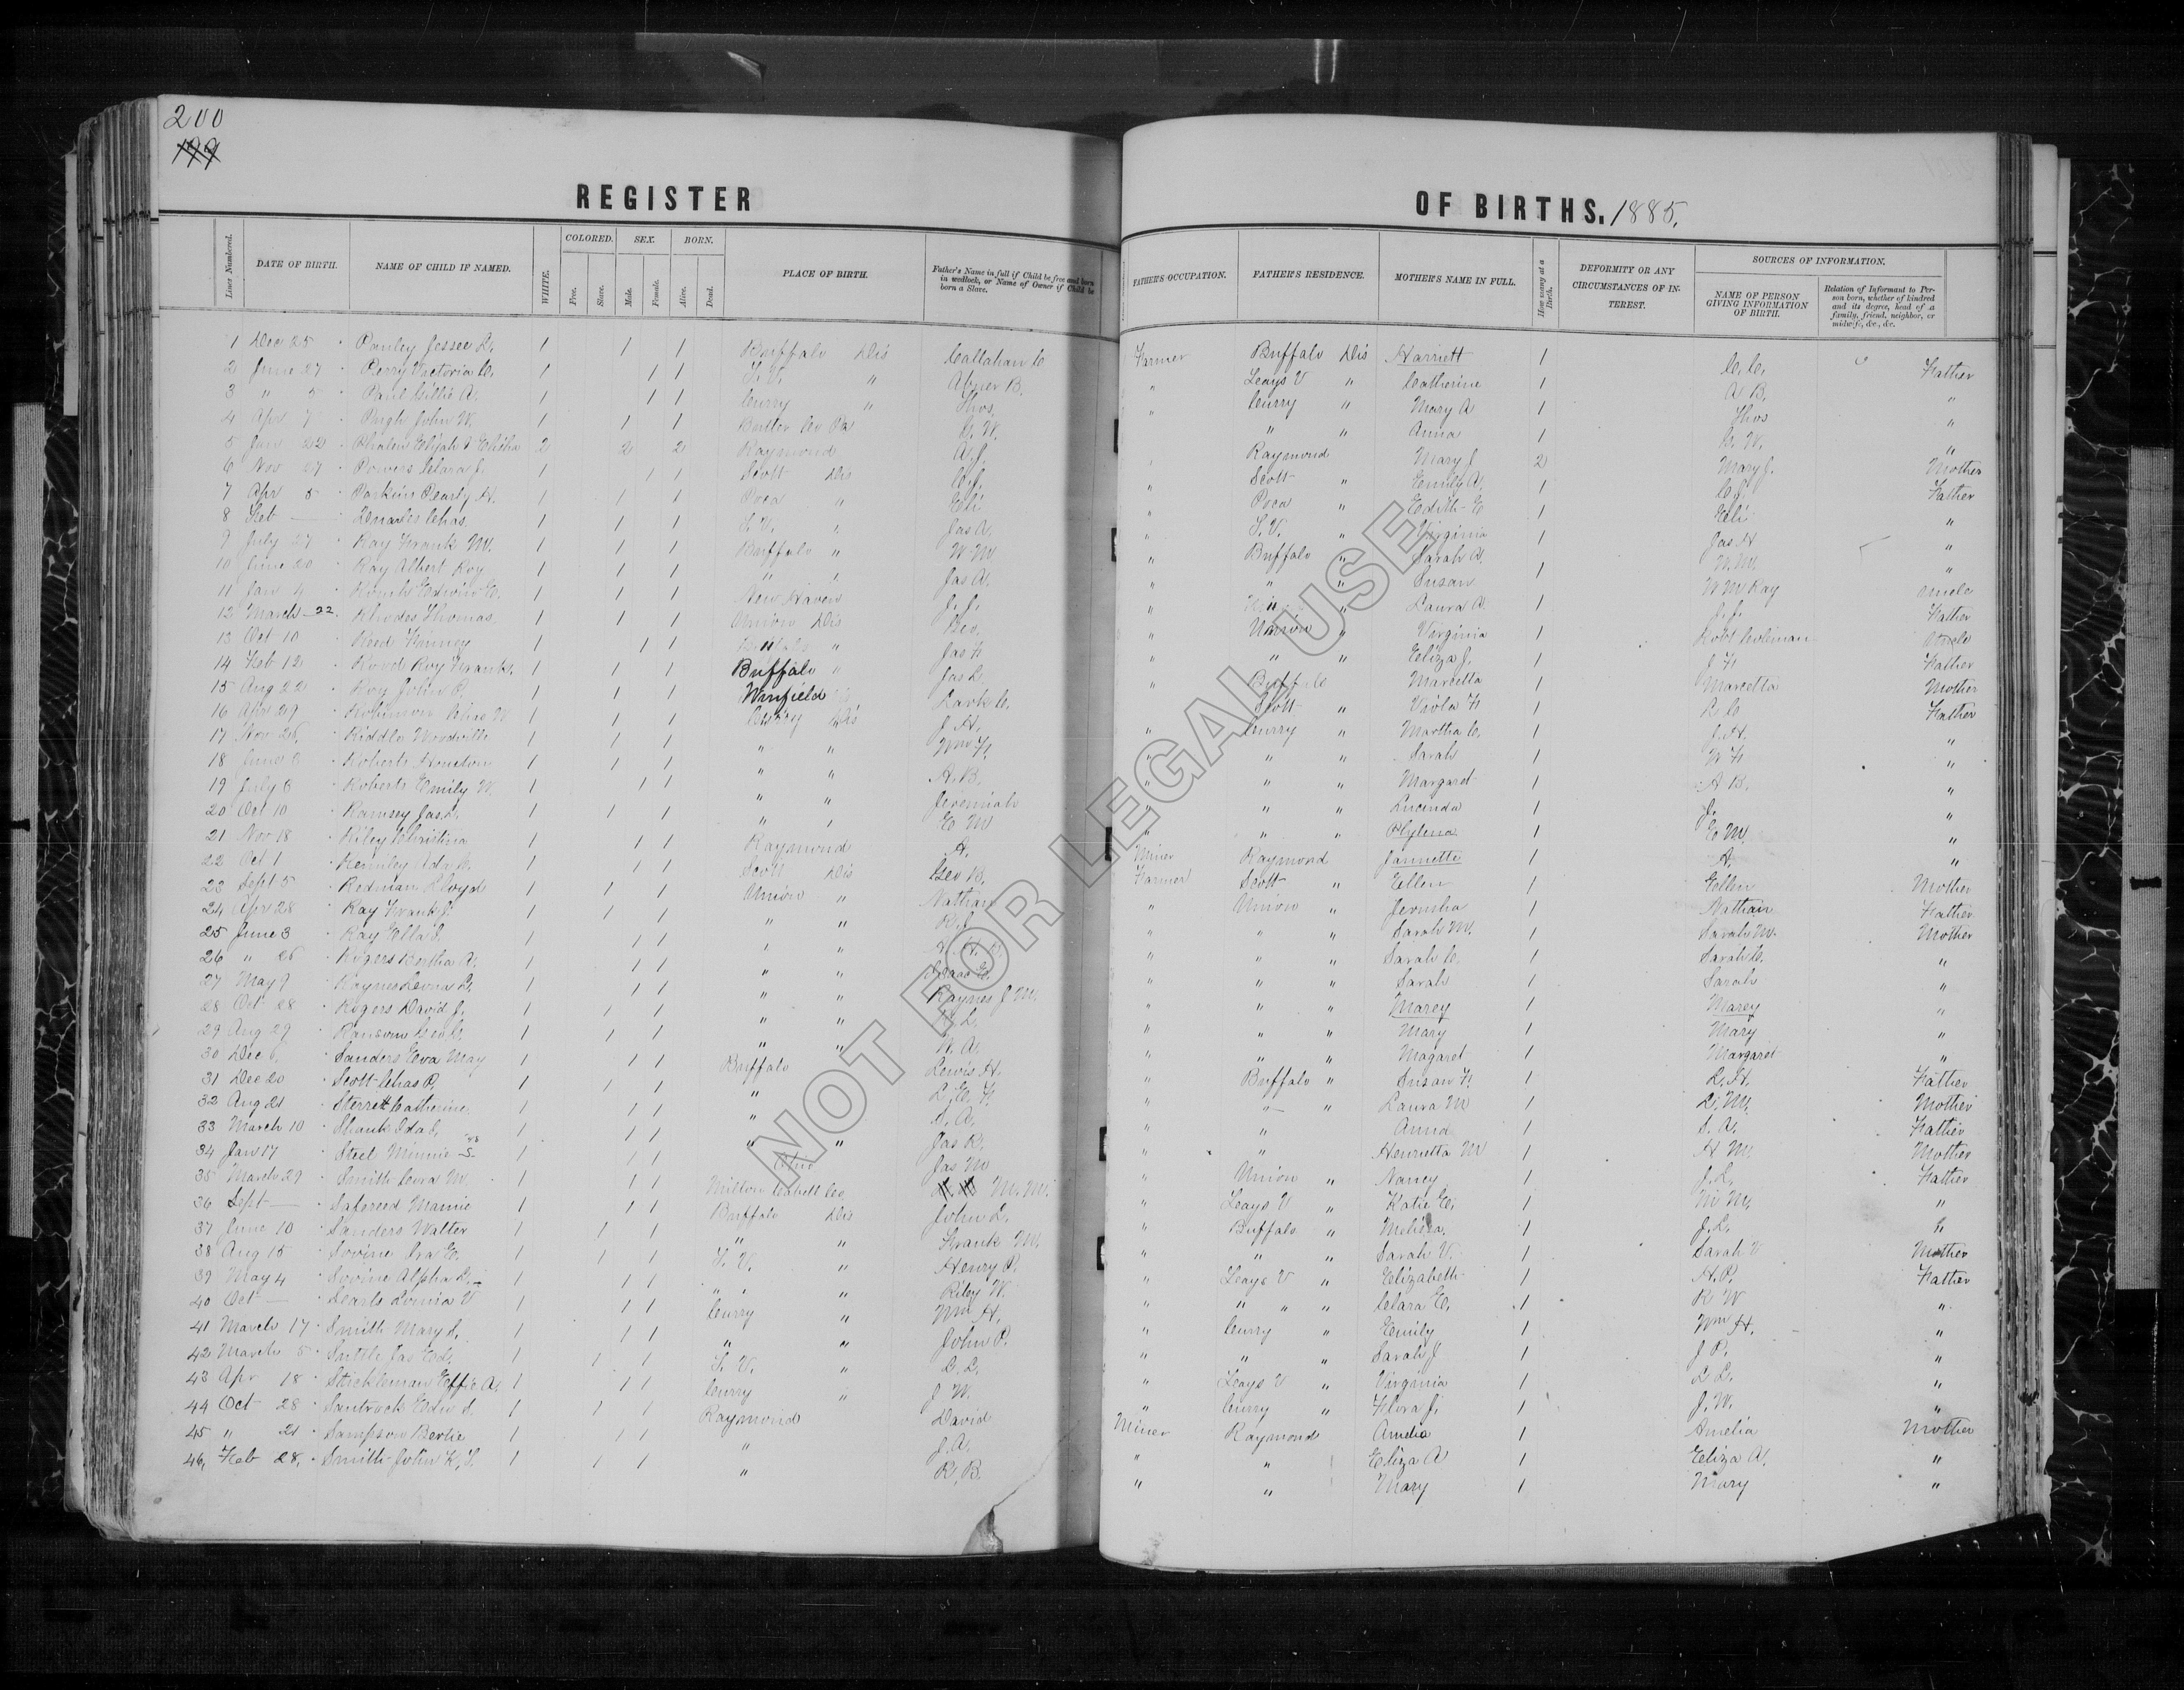 200
199
REGISTER OF BIRTHS. 1885.
Lines Numbered. DATE OF BIRTH. NAME OF CHILD IF NAMED. WHITE. COLORED. Free. Slave. SEX. Male. Female. BORN. Alive. Dead. PLACE OF BIRTH. Father's Name in full if Child be free and born in wedlock, or Name of Owner if Child be born a Slave. FATHER'S OCCUPATION. FATHER'S RESIDENCE. MOTHER'S NAME IN FULL. How many at a Birth. DEFORMITY OR ANY CIRCUMSTANCES OF INTEREST. SOURCES OF INFORMATION. NAME OF PERSON GIVING INFORMATION OF BIRTH. Relation of Informant to Person born, whether of kindred and its degree, head of a family, friend, neighbor, or midwife, &c., &c.
1 Dec 25 Pauley Jessee L. 1 1 1 Buffalo Dis Callahan C Farmer Buffalo Dis Harriett 1 C. C. Father
2 June 27 Perry Victoria C. 1 1 1 T. V. " Abner B. " Teays V " Catherine 1 A B. "
3 " 5 Paul Lillie A. 1 1 1 Curry " Thos. " Curry " Mary A 1 Thos "
4 Apr 7 Pugh John W. 1 1 1 Butler Co Pa G. W. " " Anna 1 G. W. "
5 Jan 22 Phalen Elijah & Elisha 2 2 2 Raymond A. J. Raymond Mary J 2 Mary J. Mother
6 Nov 27 Powers Clara J. 1 1 1 Scott Dis C. J. " Scott " Emily A. 1 C. J. Father
7 Apr 5 Paskins Pearly H. 1 1 1 Poca " Eli " Poca " Edith E 1 Eli "
8 Feb — Charles Chas. 1 1 1 T. V. " Jas A. " T. V. " Virginia 1 Jas A "
9 July 27 Ray Frank M. 1 1 1 Buffalo " W M " Buffalo " Sarah A. W. M. "
10 June 20 Ray Albert Roy 1 1 1 " " Jas A. " " " Susan 1 W M Ray Uncle
11 Jan 4 Roush Edwin E. 1 1 1 New Haven J. J. " Laura A. 1 J. J. Father
12 March 22. Rhodes Thomas 1 1 1 Union Dis Geo. " Union " Virginia 1 Robt Coleman Uncle
13 Oct 10 Reed Fanney 1 1 1 " " Jas F " " " Eliza J. 1 J F Father
14 Feb 12 Rood Roy Frank. 1 1 1 Buffalo " Jas L. " Buffalo Marcetta 1 Marcetta Mother
15 Aug 22 Roy John P. 1 1 1 Winfield Lark C. Scott " Viola F 1 L C Father
16 Apr 29 Robinson Chas W 1 1 1 Curry Dis J. H. " Curry " Martha C. 1 J. H. "
17 Nov 26 Riddle Woodville 1 1 1 " " Wm F. " " " Sarah 1 W F "
18 June 8 Roberts Houston 1 1 1 " " A. B. " " " Margaret 1 A B. "
19 July 8 Roberts Emily W. 1 1 1 " " Jeremiah " " " Lucinda 1 J. "
20 Oct 10 Ramsey Jas L. 1 1 1 " " E M " " " Phylena 1 E M. "
21 Nov 18 Riley Christina 1 1 1 Raymond A. Miner Raymond Jannette 1 A. "
22 Oct 1 Remley Ada M. 1 1 1 Scott Dis Geo B. Farmer Scott " Ellen 1 Ellen Mother
23 Sept 5 Redman Lloyd 1 1 1 Union " Nathan " Union " Jerusha 1 Nathan Father
24 Apr 28 Ray Frank J. 1 1 1 " " " " " Sarah M. 1 Sarah M. Mother
25 June 3 Ray Ella J. 1 1 1 " " " " " Sarah C. 1 Sarah C. "
26 " 26 Rogers Bertha A. 1 1 1 " " Isaac E. " " " Sarah 1 Sarah "
27 May 9 Raynes Leona L. 1 1 1 " " Raynes J M. " " " Marey 1 Marey "
28 Oct 28 Rogers David J. 1 1 1 " " " " " Mary 1 Mary "
29 Aug 29 Ransom Geo C. 1 1 1 " " W. A. " " " Magaret 1 Margaret "
30 Dec 6 Sanders Eva May 1 1 1 Buffalo Lewis H. " Buffalo " Susan F. 1 L. H. Father
31 Dec 20 Scott Chas P. 1 1 1 " L. E. F. " " " Laura M 1 L. M. Mother
32 Aug 21 Sterrett Catherine 1 1 1 " S. A. " " Anna 1 S. A. Father
33 March 10 Shank Ida S. 1 1 1 " " Jas R. " " Henrietta M 1 H M. Mother
34 Jan 17 Steel Minnie S. 1 1 1 Ohio Jas M " Union " Nancy 1 J. L. Father
35 March 29 Smith Cora M. 1 1 1 Milton Cabell Co. M. M. " Teays V " Katie E. 1 M M. "
36 Sept — Safereed Mamie 1 1 1 Buffalo Dis John L. " Buffalo " Melissa. 1 J. L. "
37 June 10 Sanders Walter 1 1 1 " " Frank M. " " " Sarah V. 1 Sarah V Mother
38 Aug 15 Sovine Ira E. 1 1 1 T. V. " Henry P. " Teays V " Elizabeth 1 H. P. Father
39 May 4 Sovine Alpha L. 1 1 1 " " " Riley W. " " " " Clara E. 1 R W "
40 Oct — Searls Lonnia V 1 1 1 Curry " Wm H. " Curry " Emily 1 Wm H. "
41 March 17 Smith Mary S. 1 1 1 " " John P. " " " Sarah J 1 J P. "
42 March 5 Suttle Jas Ed. 1 1 1 T. V. " L. L. " Teays V " Virginia 1 L L. "
43 Apr 18 Stickleman Effie A. 1 1 1 Curry " J W. " Curry " Flora J. 1 J. W. "
44 Oct 28 Santrock Edw S. 1 1 1 Raymond David Miner Raymond Amelia 1 Amelia Mother
45 " 21 Sampson Bertie 1 1 1 " J. A. " " Eliza A 1 Eliza A. "
46, Feb 28, Smith John K. S. 1 1 1 " R. B. " " Mary 1 Mary "
NOT FOR LEGAL USE